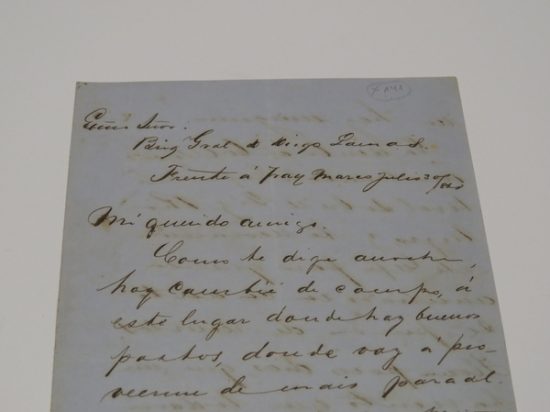 Exmo Señor:
Brig Gral d Diego Lamas.
Frente á Fray Marcos Julio 20/
Mi querido amigo.
Como te dige anoche,
hoy cambié de campo, á
este lugar donde hay buenos
pastos, donde voy á pro-
veerme de mais para al